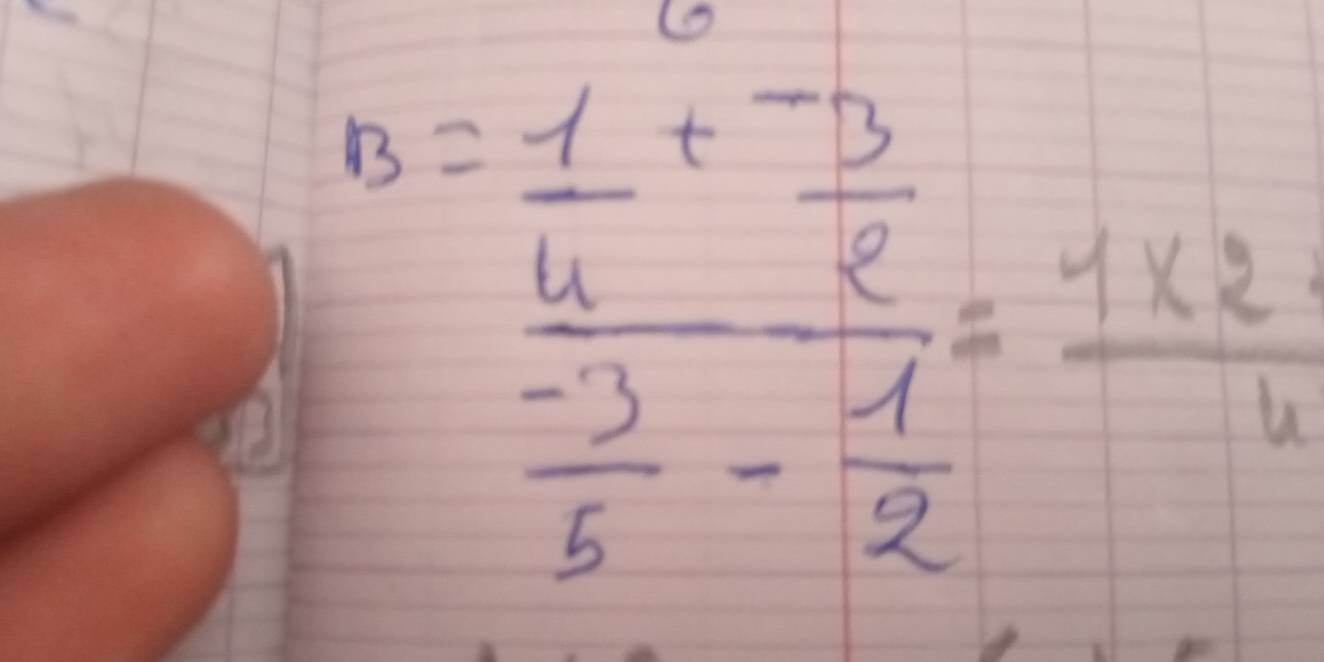 6
B = 1/4 + -3/2
-3/5 - 1/2
= 1 x 2
4